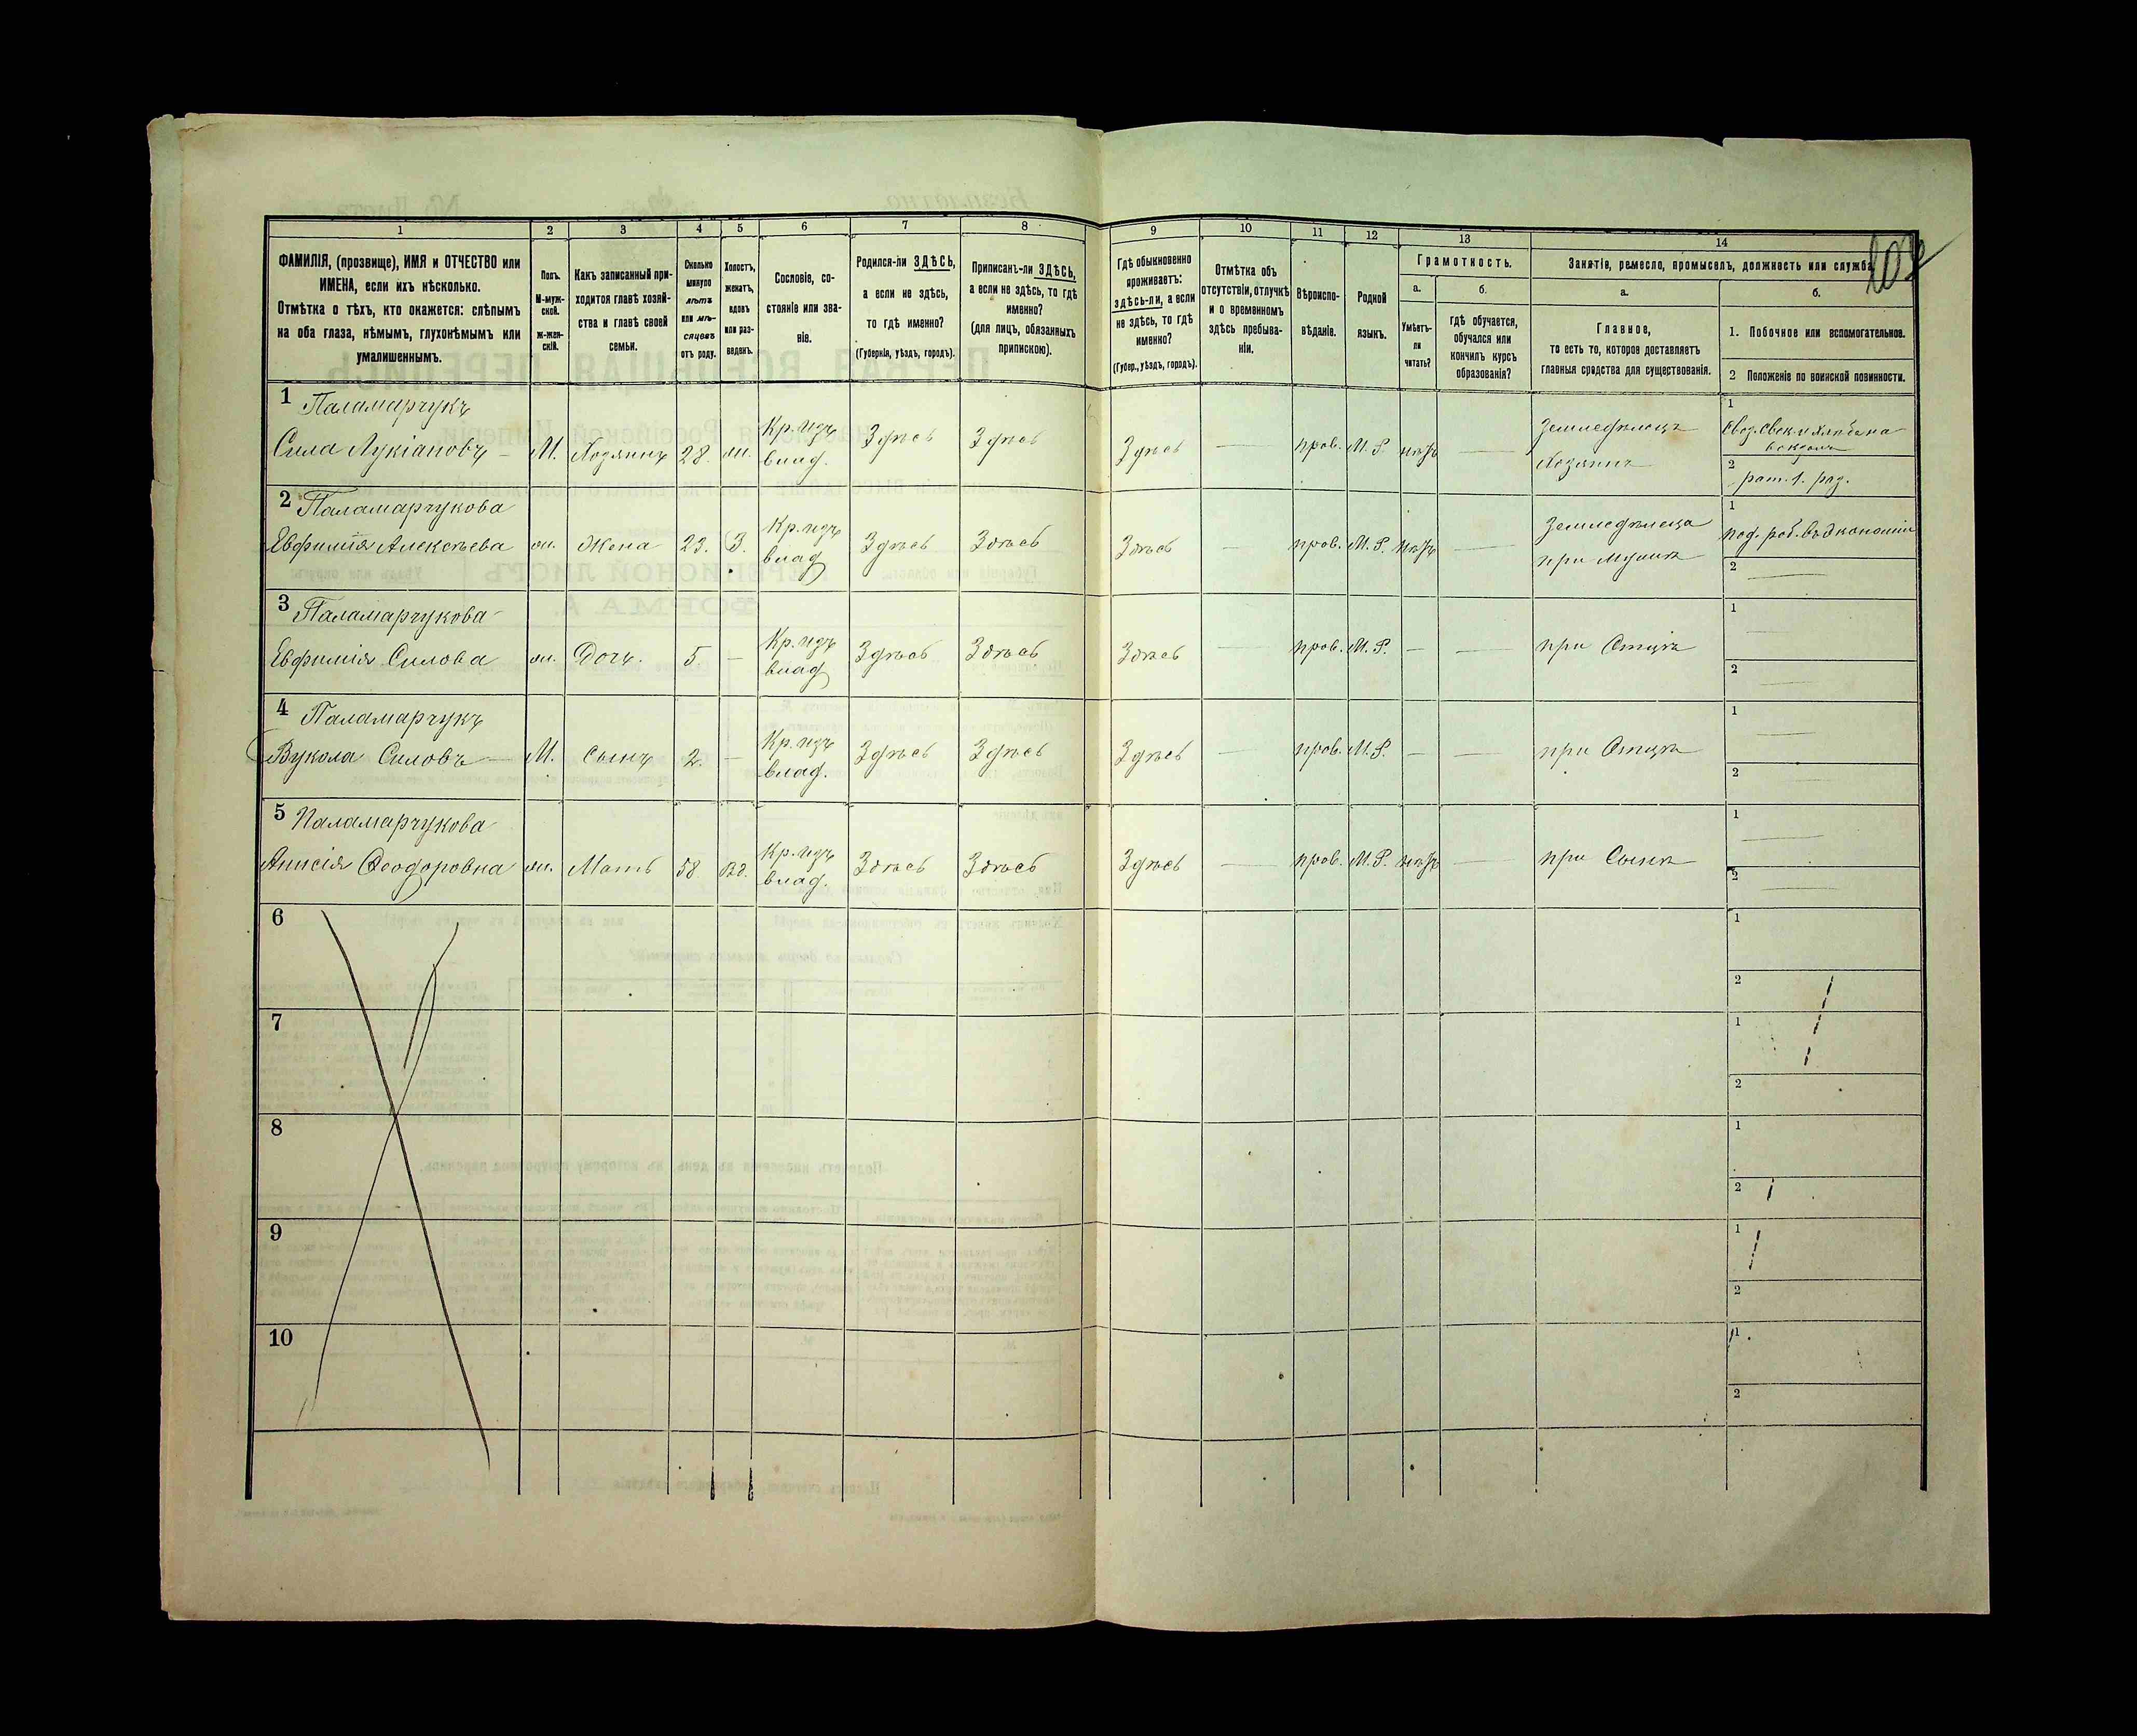 1 2 3 4 5 6 7 8 9 10 11 12 13 14
ФАМИЛІЯ, (прозвище), ИМЯ и ОТЧЕСТВО или
ИМЕНА, если ихъ нѣсколько.
Отмѣтка о тѣхъ, кто окажется: слѣпымъ
на оба глаза, нѣмымъ, глухонѣмымъ или
умалишеннымъ.
Полъ.
М-муж-
ской.
ж-жен-
скій.
Какъ записанный при-
ходится главѣ хозяй-
ства и главѣ своей
семьи.
Сколько
минуло
лѣтъ
или мѣ-
сяцевъ
отъ роду.
Холостъ,
женатъ,
вдовъ
или раз-
веденъ.
Сословіе, со-
стояніе или зва-
ніе.
Родился-ли ЗДѢСЬ,
а если не здѣсь,
то гдѣ именно?
(Губернія, уѣздъ, городъ).
Приписанъ-ли ЗДѢСЬ,
а если не здѣсь, то гдѣ
именно?
(для лицъ, обязанныхъ
припискою).
Гдѣ обыкновенно
проживаетъ:
здѣсь-ли, а если
не здѣсь, то гдѣ
именно?
(Губер., уѣздъ, городъ).
Отмѣтка объ
отсутствіи, отлучкѣ
и о временномъ
здѣсь пребыва-
ніи.
Вѣроиспо-
вѣданіе.
Родной
языкъ.
Грамотность.
а.
Умѣетъ-
ли
читать?
б.
гдѣ обучается,
обучался или
кончилъ курсъ
образованія?
Занятіе, ремесло, промыселъ, должность или служба.
а.
Главное,
то есть то, которое доставляетъ
главныя средства для существованія.
б.
1. Побочное или вспомогательное.
2 Положеніе по воинской повинности.
1 Паламарчукъ
Сила Лукіановъ М. Хозяинъ 28. ж. Кр. изъ влад. Здѣсь Здѣсь Здѣсь — прав. М.Р. нѣтъ — Земледѣлецъ Хозяинъ
1
2 рат. 1. раз.
2 Паламарчукова
Евфимія Алексѣева ж. Жена 23. З. Кр. изъ влад Здѣсь Здѣсь Здѣсь — прав. М.Р. нѣтъ — Земледѣлица при мужѣ
1
2 —
3 Паламарчукова
Евфимія Силова ж. Дочь. 5 — Кр. изъ влад Здѣсь Здѣсь Здѣсь — прав. М.Р. — — при Отцѣ
1 —
2 —
4 Паламарчукъ
Вукола Силовъ М. Сынъ 2. — Кр. изъ влад. Здѣсь Здѣсь Здѣсь — прав. М.Р. — — при Отцѣ
1 —
2 —
5 Паламарчукова
Анисія Ѳеодоровна ж. Мать 58. Вд. Кр. изъ влад. Здѣсь Здѣсь Здѣсь — прав. М.Р. нѣтъ — при Сынѣ
1 —
2 —
6
1
2
7
1
2
8
1
2
9
1
2
10
1
2